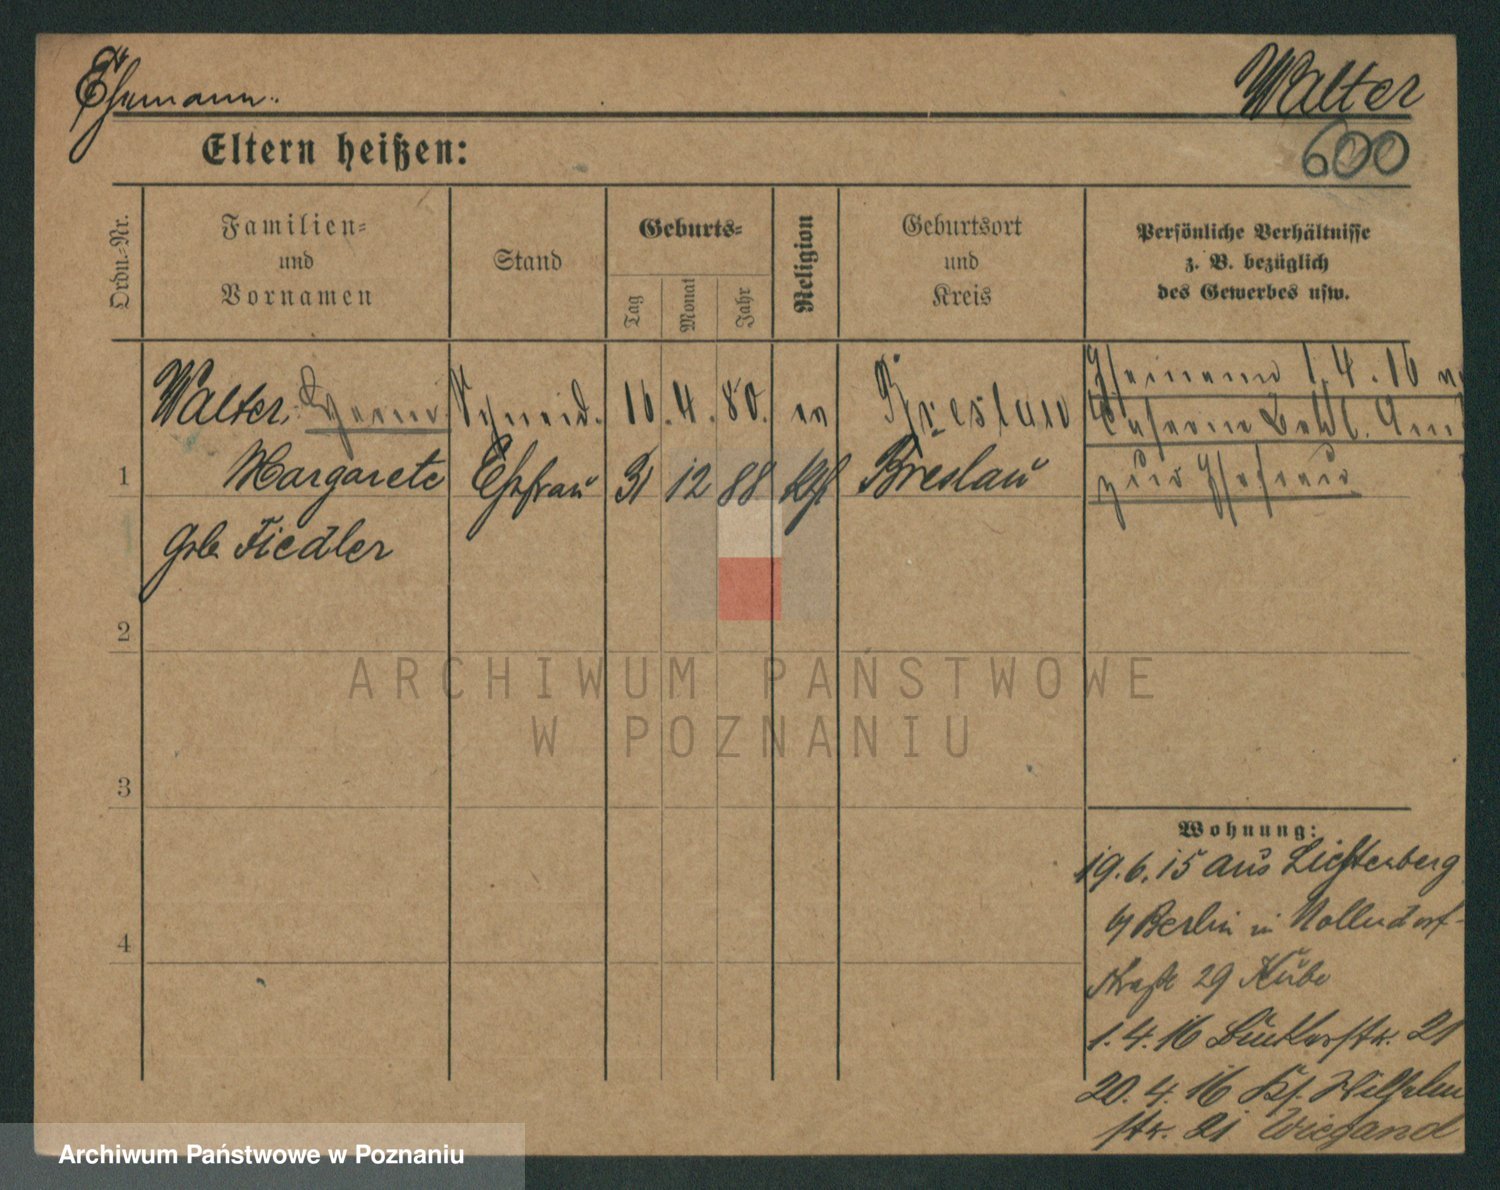 Ehemann. Walter
600
Eltern heißen:
Ordn.-Nr.
Familien-
und
Vornamen
Stand
Geburts-
Tag
Monat
Jahr
Religion
Geburtsort
und
Kreis
Persönliche Verhältnisse
z. B. bezüglich
des Gewerbes usw.
Walter, Schneid. 16. 4. 80. ev Breslau
1 Margarete Ehefrau 31 12 88 kth Breslau
geb. Fiedler
Ehemann 1.4.16
zur Ehefrau
2
3
4
Wohnung:
19.6.15 aus Lichtenberg
b/ Berlin in Nollendorf-
straße 29 Kube
1.4.16 21
20.4.16 Ks. Wilhelm
str. 21 Wiegand
ARCHIWUM PAŃSTWOWE
W POZNANIU
Archiwum Państwowe w Poznaniu